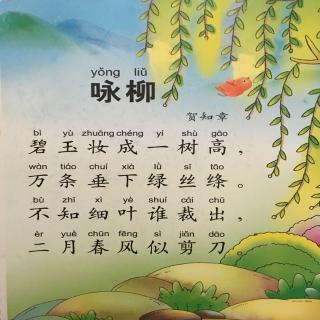 yǒng liǔ
咏柳
贺知章
bì yù zhuāng chéng yí shù gāo
碧玉妆成一树高，
wàn tiáo chuí xià lǜ sī tāo
万条垂下绿丝绦。
bù zhī xì yè shuí cái chū
不知细叶谁裁出，
èr yuè chūn fēng sì jiǎn dāo
二月春风似剪刀